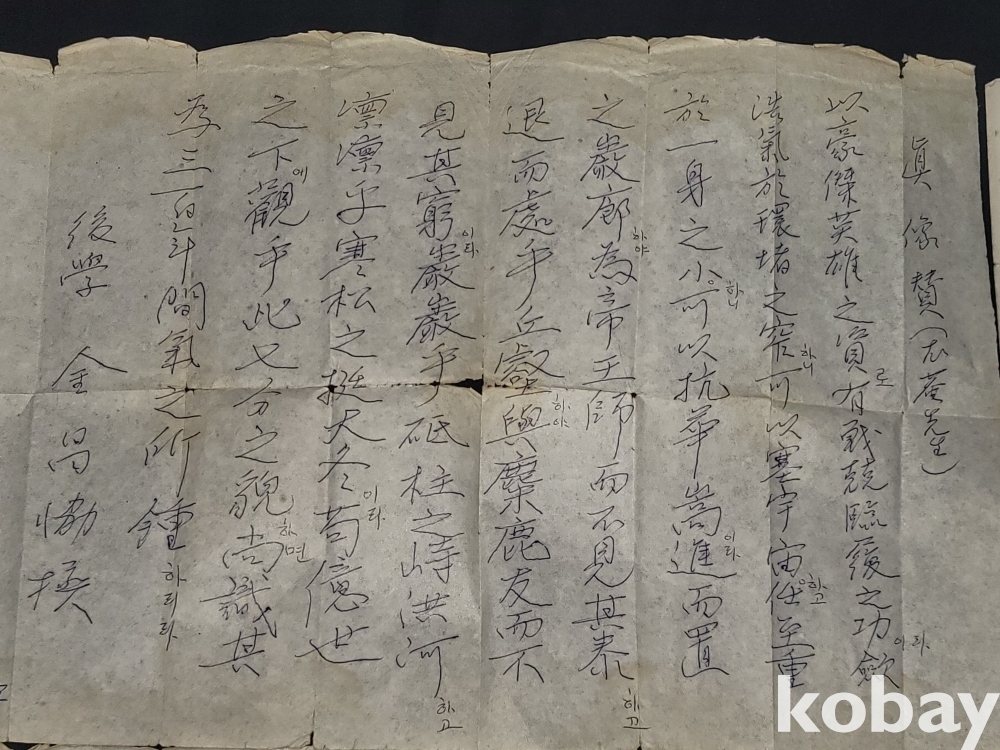 眞像贊(尤菴先生)
以豪傑英雄之資로有战兢臨履之功이라歛
浩氣於環堵之窄하니可以塞宇宙하고任至重
於一身之小하니可以抗華嵩이라進而置
之巌廊하야為帝王師而不見其泰하고
退而處乎丘壑하야與麋鹿友而不
見其窮이라巌巌乎砥柱之峙洪河하고
凛凛乎寒松之挺大冬이라苟億世
之下에觀乎此七分之貌하면尚識其
為三百年間氣之所鍾하리라
後學 金昌協 撰
kobay